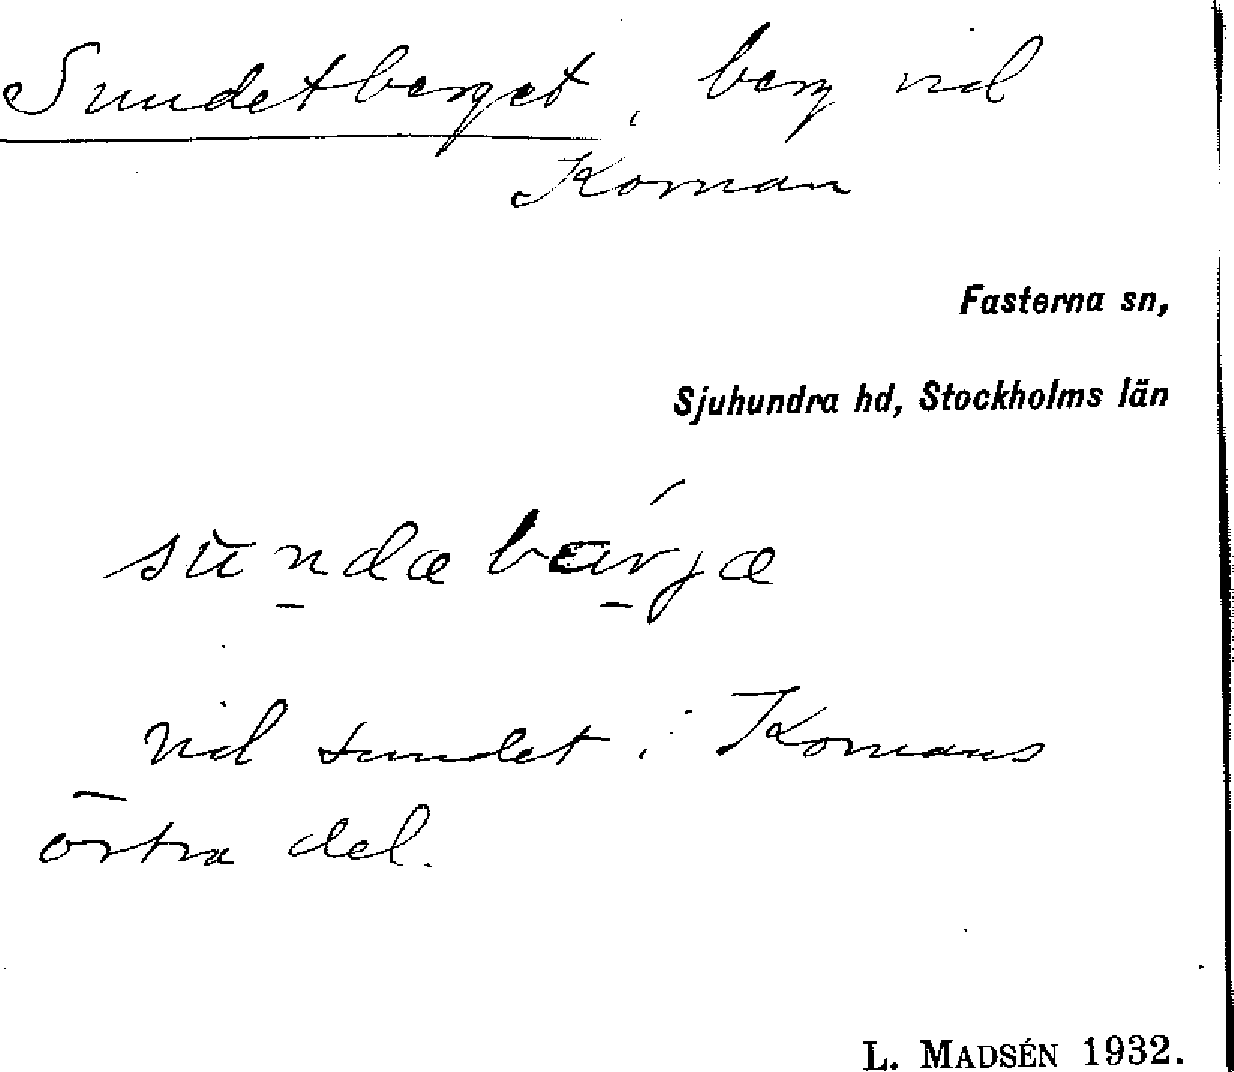 Sundetberget, berg vid
Korran
Fasterna sn,
Sjuhundra hd, Stockholms län
vid sundet i Kornans
östra del.
L. MADSÉN 1932.